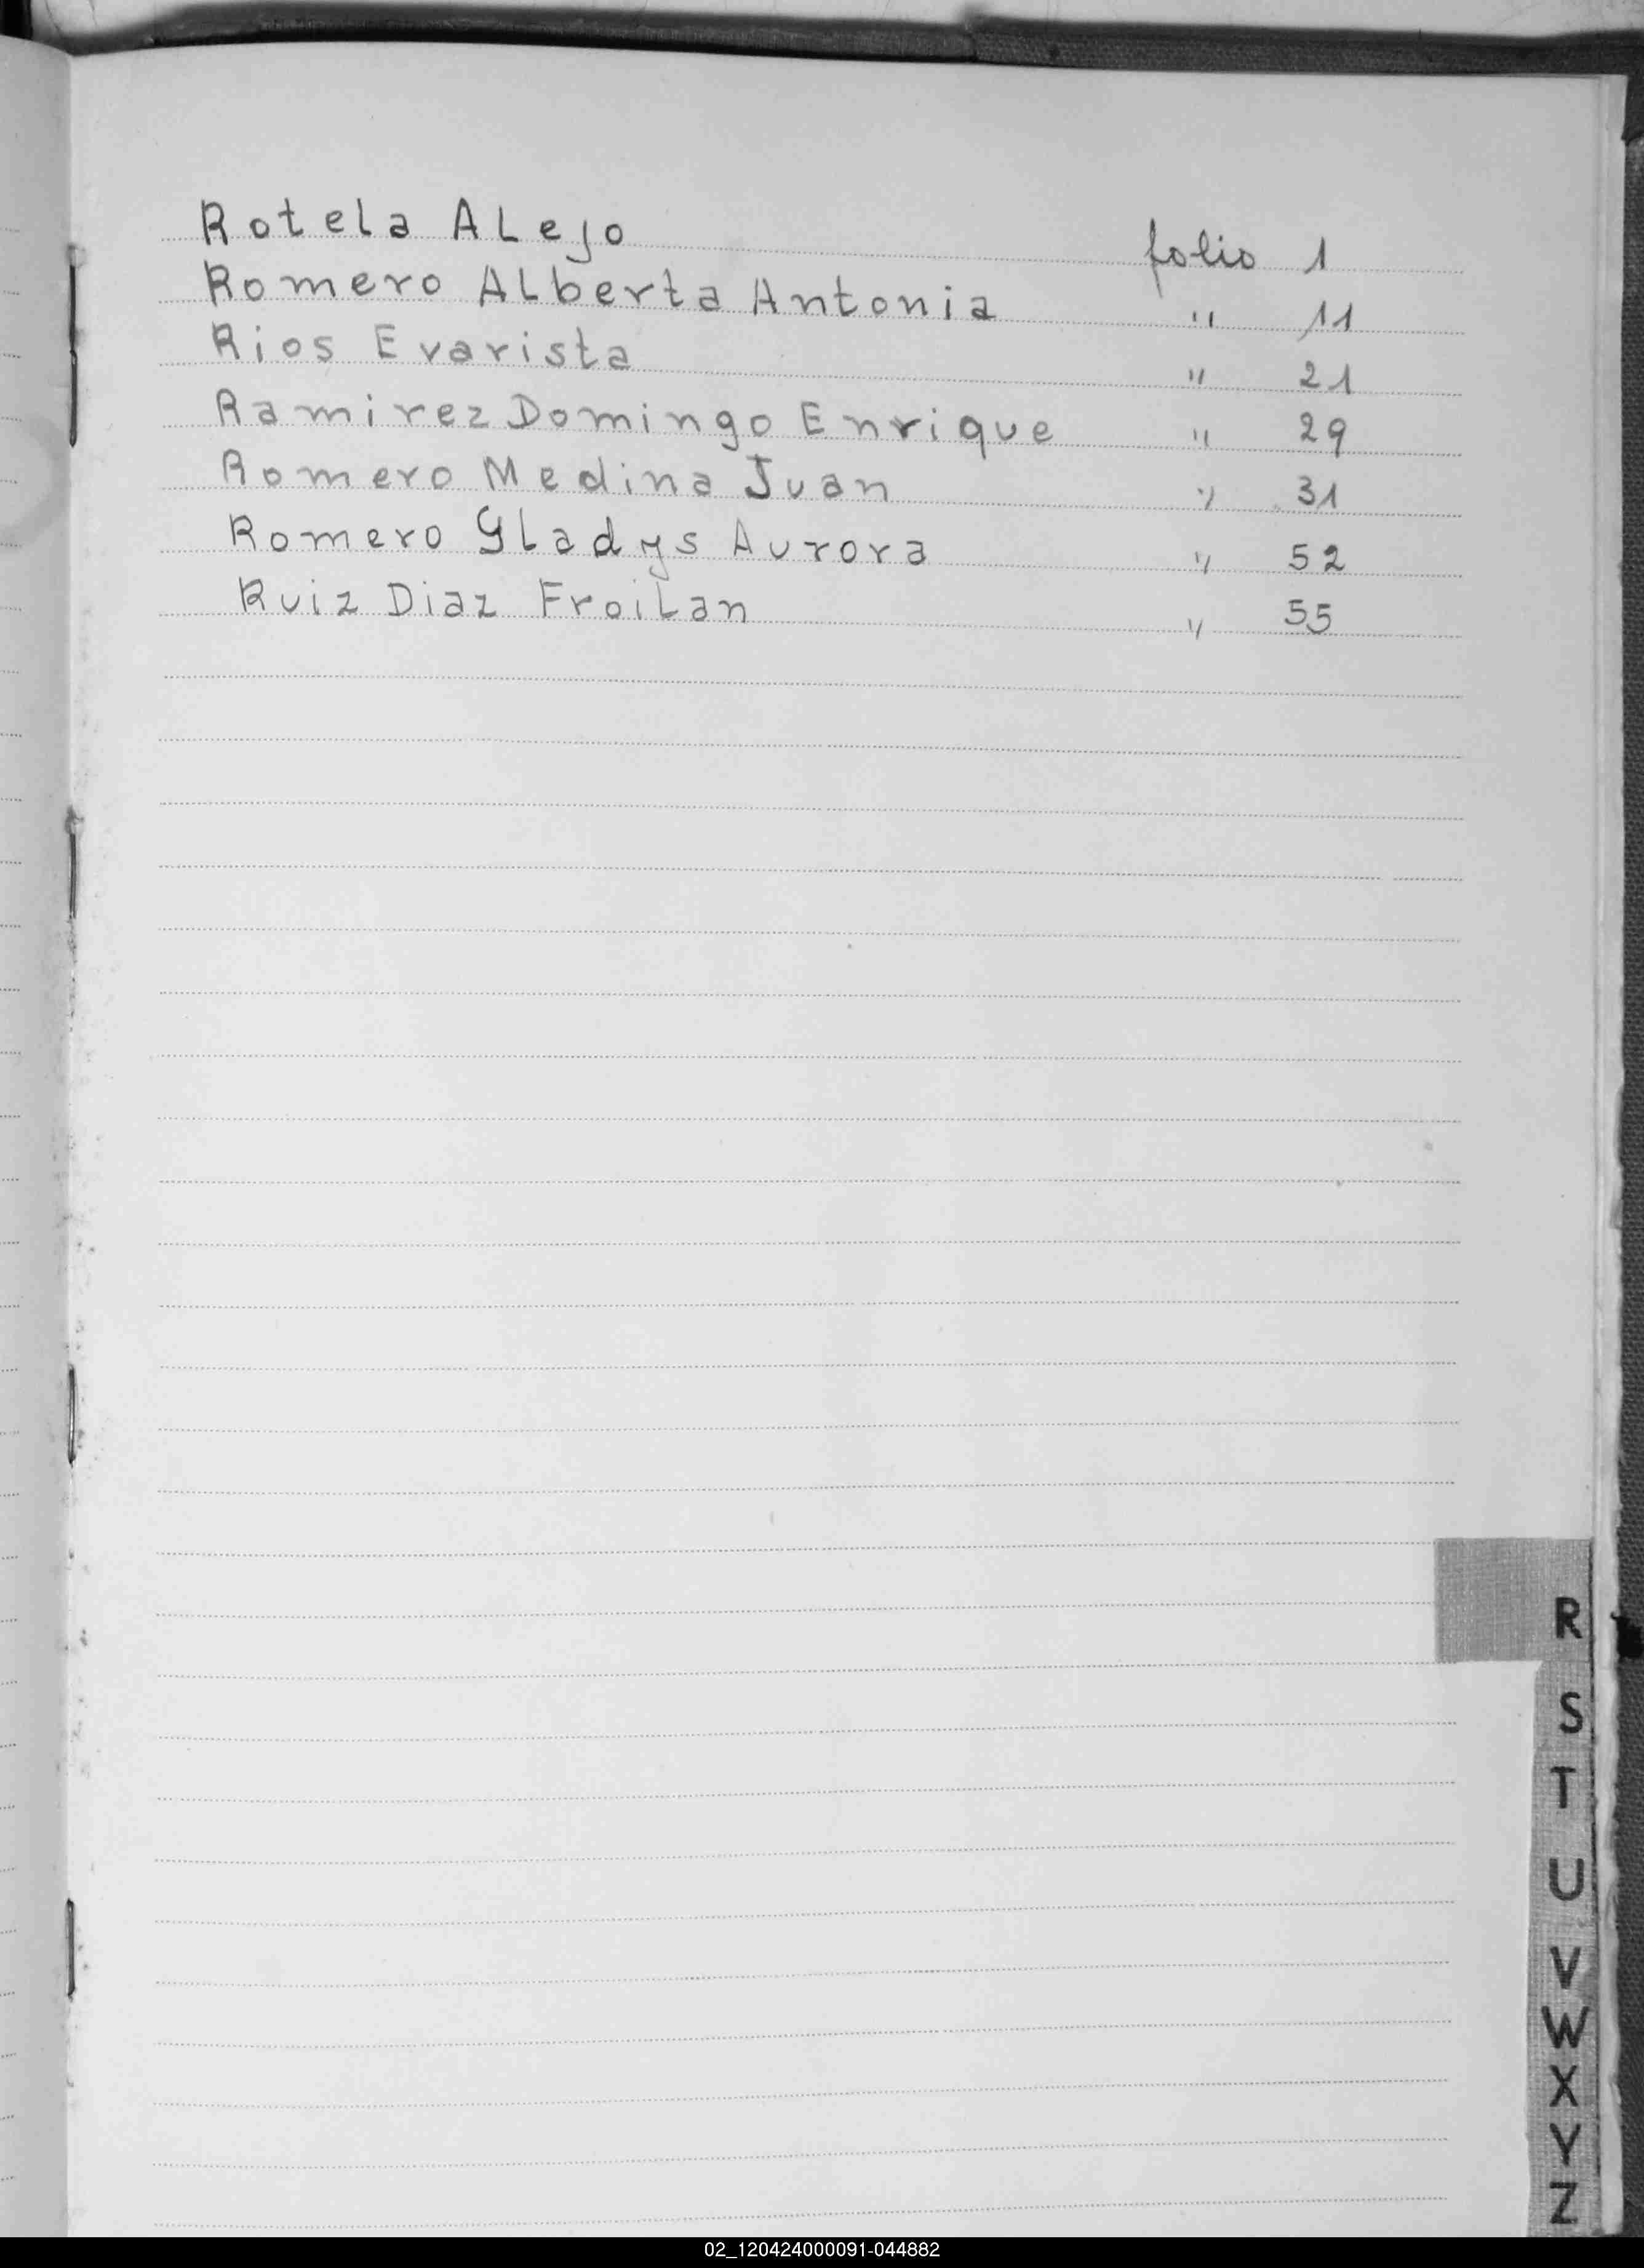 Rotela Alejo folio 1
Romero Alberta Antonia " 11
Rios Evarista " 21
Ramirez Domingo Enrique " 29
Romero Medina Juan " 31
Romero Gladys Aurora " 52
Ruiz Diaz Froilan " 55
R
S
T
U
V
W
X
Y
Z
02_120424000091-044882